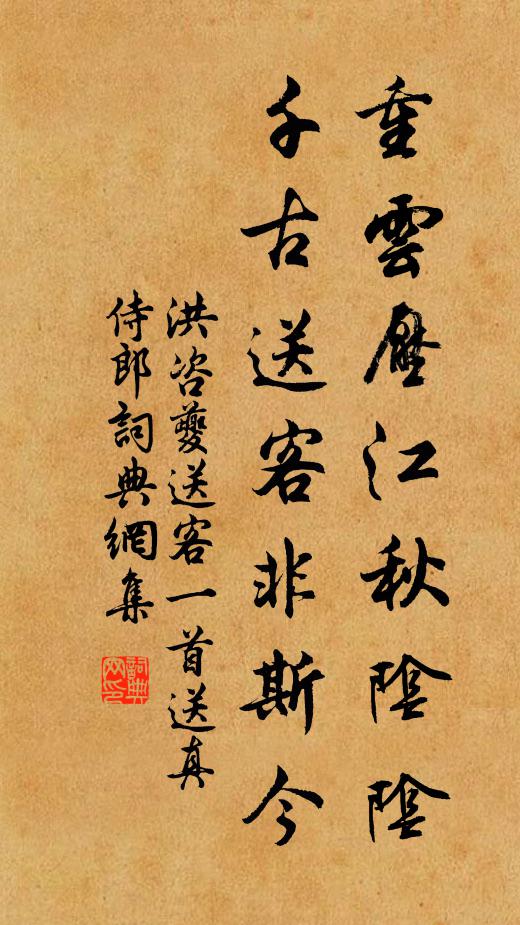 重雲壓江秋陰陰
千古送客非斯今
洪咨夔送客一首送真
侍郎詞典網集
詞典网印